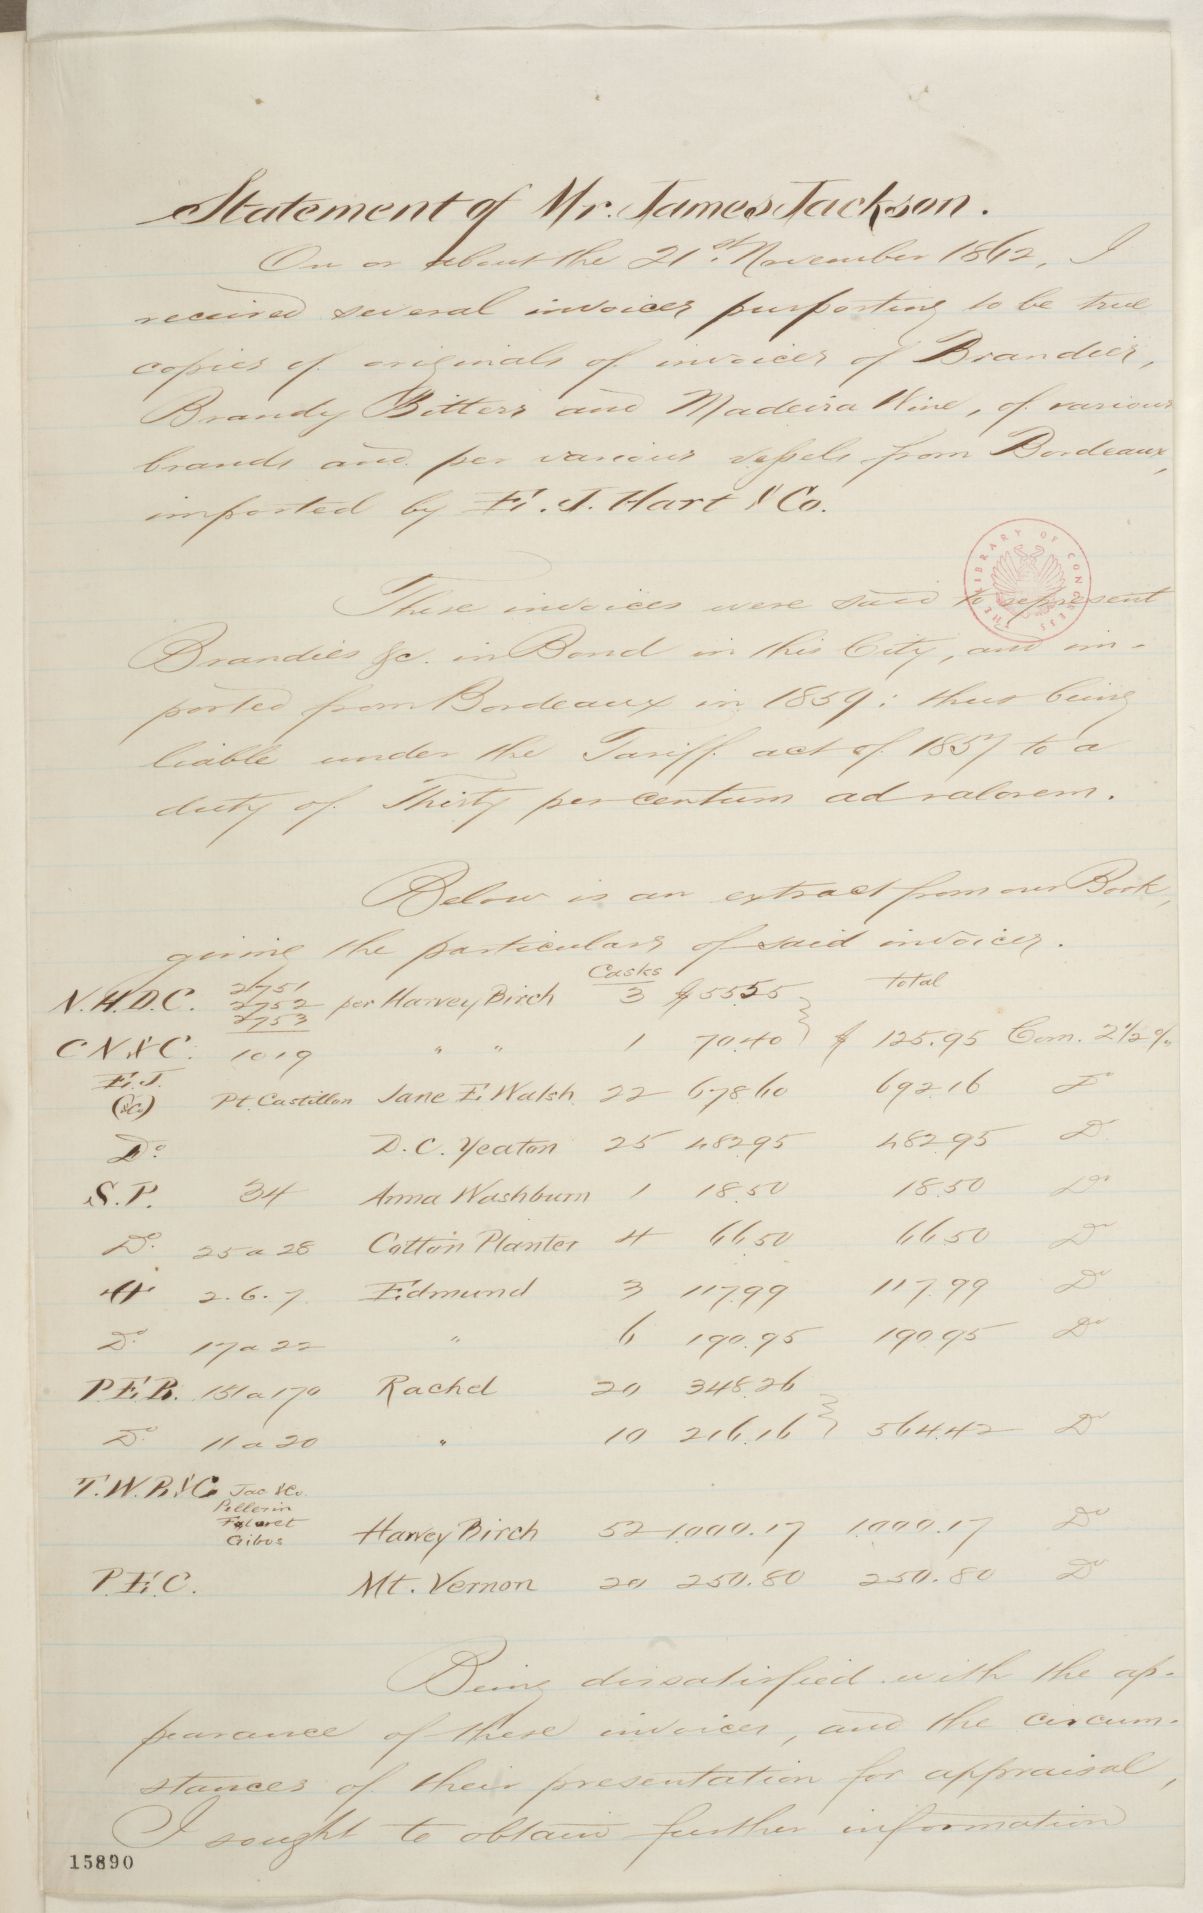 Statement of Mr. James Jackson.
On or about the 21st. November 1862, I
received several invoices purporting to be true
copies of originals of invoices of Brandies,
Brandy Bitters and Madeira Wine, of various
brands and per various vessels from Bordeaux,
imported by E. J. Hart & Co.
THE LIBRARY OF CONGRESS
These invoices were said to represent
Brandies &c. in Bond in this City, and im-
ported from Bordeaux in 1859; thus being
liable under the Tariff act of 1857 to a
duty of Thirty per centum ad valorem.
Below is an extract from our Book,
giving the particulars of said invoices.
Casks total
N.H.D.C. 2751 2752 2753 per Harvey Birch 3 $55.55
C N & C. 1019 " " 1 70.40 $ 125.95 Com. 2 1/2 %
E.J. (&Co) Pt. Castillon Jane E. Walsh 22 678.60 692.16 Do
Do. D.C. Yeaton 25 482.95 482.95 Do
S.P. 34 Anna Washburn 1 18.50 18.50 Do
Do. 25 a 28 Cotton Planter 4 66.50 66.50 Do
H 2.6.7. Edmund 3 117.99 117.99 Do
Do. 17 a 22 " 6 190.95 190.95 Do
P.E.R. 151 a 170 Rachel 20 348.26
Do. 11 a 20 " 10 216.16 564.42 Do
T.W.R.&C Jac. &Co.
Pellerin
Gibus Harvey Birch 52 1000.17 1000.17 Do
P.E.C. Mt. Vernon 20 250.80 250.80 Do
Being dissatisfied with the ap-
pearance of these invoices, and the circum-
stances of their presentation for appraisal,
I sought to obtain further information
15890